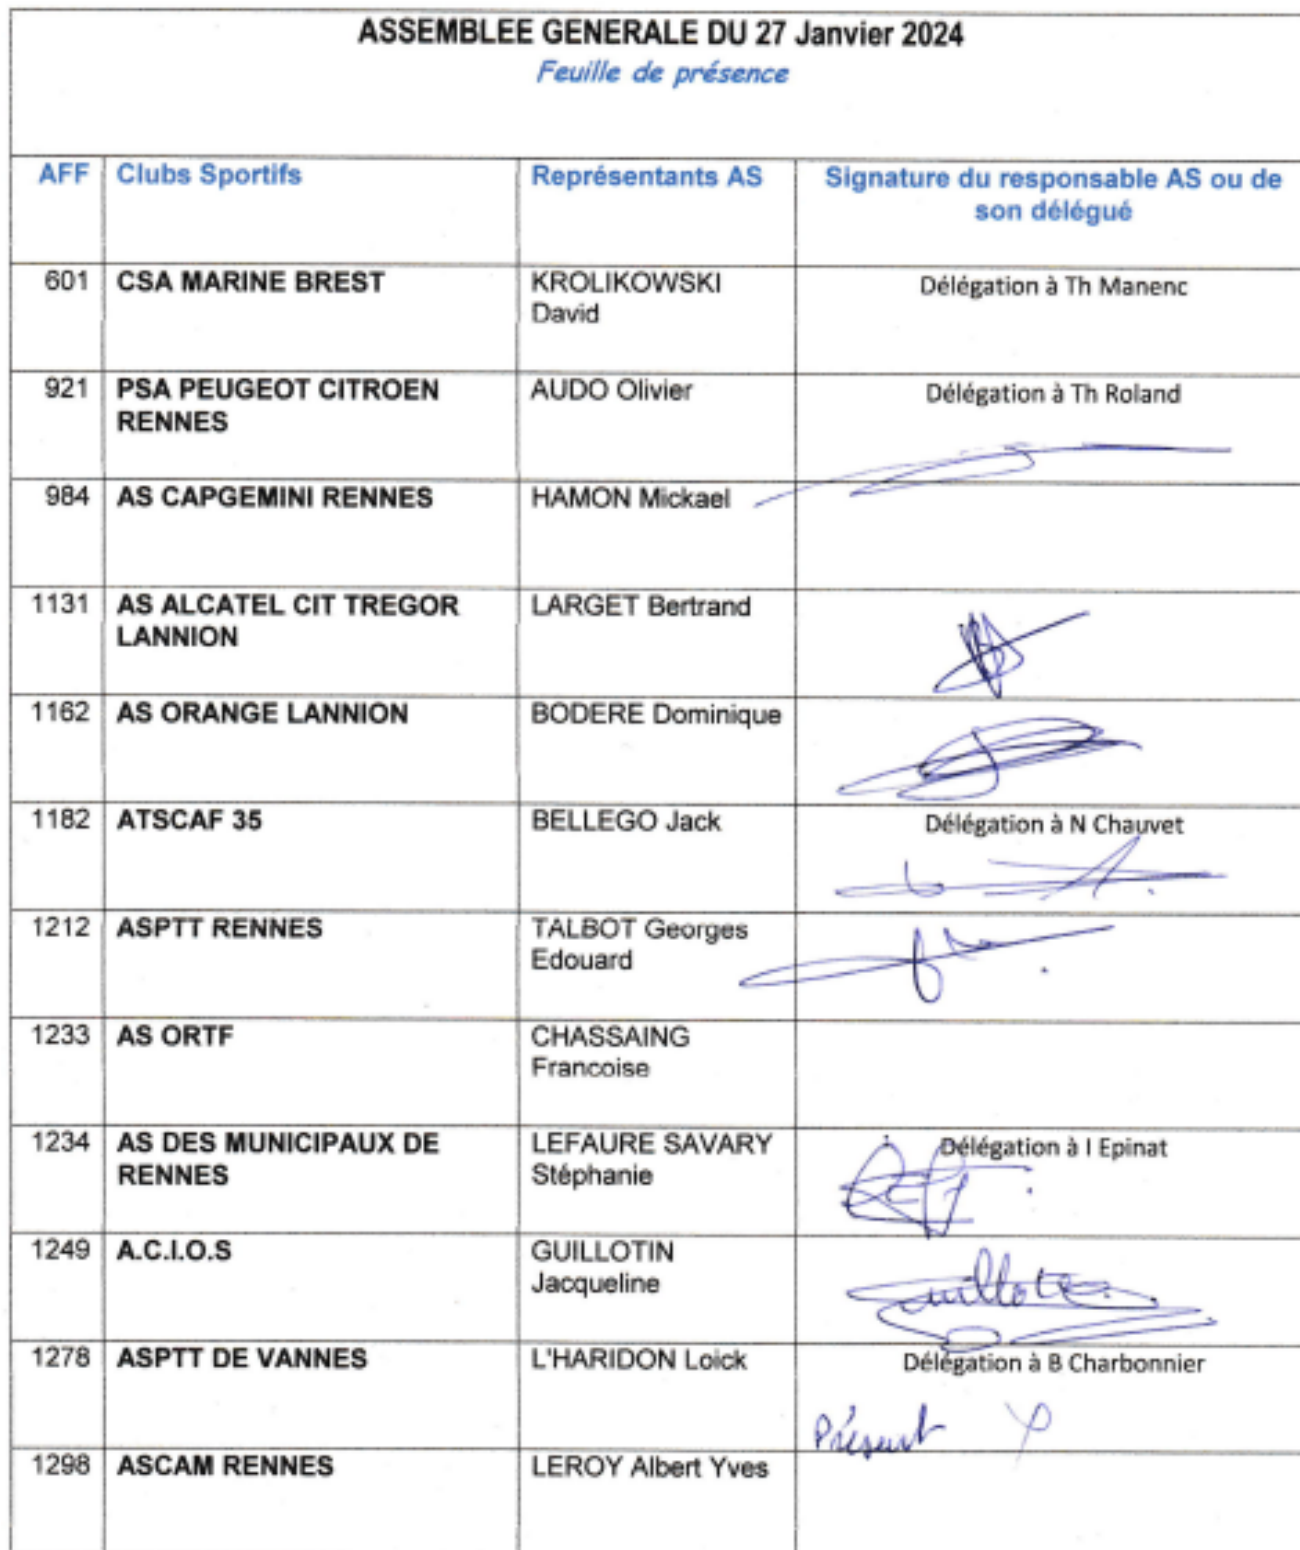 ASSEMBLEE GENERALE DU 27 Janvier 2024
Feuille de présence
AFF Clubs Sportifs Représentants AS Signature du responsable AS ou de
son délégué
601 CSA MARINE BREST KROLIKOWSKI Délégation à Th Manenc
David
921 PSA PEUGEOT CITROEN AUDO Olivier Délégation à Th Roland
RENNES
984 AS CAPGEMINI RENNES HAMON Mickael
1131 AS ALCATEL CIT TREGOR LARGET Bertrand
LANNION
1162 AS ORANGE LANNION BODERE Dominique
1182 ATSCAF 35 BELLEGO Jack Délégation à N Chauvet
1212 ASPTT RENNES TALBOT Georges
Edouard
1233 AS ORTF CHASSAING
Francoise
1234 AS DES MUNICIPAUX DE LEFAURE SAVARY Délégation à I Epinat
RENNES Stéphanie
1249 A.C.I.O.S GUILLOTIN
Jacqueline
1278 ASPTT DE VANNES L'HARIDON Loick Délégation à B Charbonnier
Présent
1298 ASCAM RENNES LEROY Albert Yves